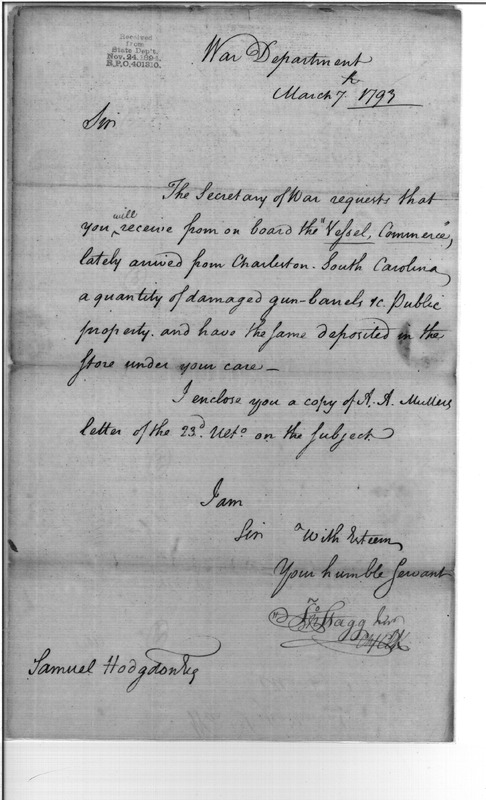 Received
from
State Dep't.
Nov. 24. 1894.
R.P.O. 401310.
War Department
March 7th 1793
Sir
The Secretary of War requests that
you will receive from on board the "Vessel, Commerce",
lately arrived from Charleston. South Carolina
a quantity of damaged gun-barrels &c. Public
property. and have the same deposited in the
Store under your care —
I enclose you a copy of A. A. Mullers
letter of the 23d. Ulto. on the subject
I am
Sir With Esteem
Your humble Servant
Jno Stagg Junr
Ch Clk
Samuel Hodgdon Esq